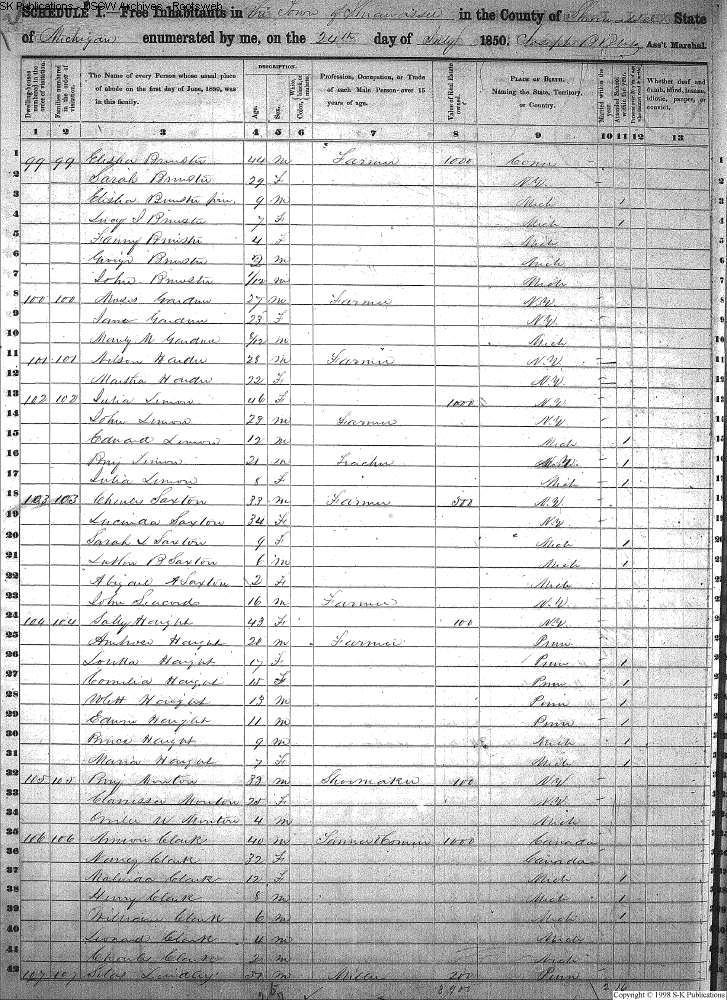 SK Publications - USGW Archives - Rootsweb
SCHEDULE I.—Free Inhabitants in the Town of Shiawassee in the County of Shiawassee State
of Michigan enumerated by me, on the 24th day of July 1850. Joseph Ass't Marshal.
Dwelling-houses numbered in the order of visitation. Families numbered in the order of visitation. The Name of every Person whose usual place of abode on the first day of June, 1850, was in this family. DESCRIPTION. Age. Sex. Color, White, black, or mulatto. Profession, Occupation, or Trade of each Male Person over 15 years of age. Value of Real Estate owned. PLACE OF BIRTH. Naming the State, Territory, or Country. Married within the year. Attended School within the year. Whether deaf and dumb, blind, insane, idiotic, pauper, or convict.
1 2 3 4 5 6 7 8 9 10 11 12 13
1 99 99 Elisha Brewster 44 M Farmer 1000 Conn
2 Sarah Brewster 29 F N.Y.
3 Elisha Brewster jun. 9 M Mich 1
4 Lucy S Brewster 7 F Mich 1
5 Fanny Brewster 4 F Mich
6 George Brewster 2 M Mich
7 John Brewster 1/12 M Mich
8 100 100 Moses Gardner 27 M Farmer N.Y.
9 Jane Gardner 23 F N.Y.
10 Mary M Gardner /12 M Mich
11 101 101 Nelson 28 M Farmer N.Y.
12 Martha 22 F N.Y.
13 102 102 Julia Limon 46 F 1000 N.Y.
14 John Limon 23 M Farmer N.Y.
15 Edward Limon 12 M Mich 1
16 Benj Limon 21 M Teacher 1
17 Julia Limon 8 F Mich 1
18 103 103 Charles Saxton 33 M Farmer 500 N.Y.
19 Lucinda Saxton 34 F N.Y.
20 Sarah L Saxton 9 F Mich 1
21 B Saxton 6 M Mich 1
22 Abigail A Saxton 2 F Mich
23 John Seacords 16 M Farmer N.Y.
24 104 104 Sally Haught 43 F 100 N.Y.
25 Ambrose Haught 20 M Farmer Penn
26 Haught 17 F Penn 1
27 Cornelia Haught 15 F Penn 1
28 Haught 13 M Penn 1
29 Edwin Haught 11 M Penn 1
30 Haught 9 M Mich 1
31 Maria Haught 7 F Mich 1
32 105 105 Benj Monton 33 M Shoemaker 100 N.Y.
33 Clarrissa Monton 25 F N.Y.
34 Monton 4 M Mich
35 106 106 Clark 40 M 1000 Canada
36 Nancy Clark 32 F Canada
37 Malinda Clark 12 F Mich 1
38 Henry Clark 8 M Mich 1
39 William Clark 6 M Mich 1
40 Leonard Clark 4 M Mich
41 Charles Clark 2 M Mich
42 107 107 Silas Lindley M Miller 200 Penn
3,900 2 16
Copyright © 1998 S-K Publications